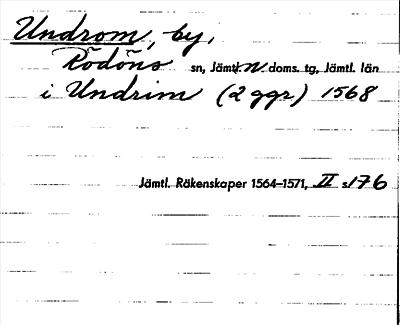 Undrom, by,
Rödöns sn, Jämtl. N doms. tg, Jämtl. län
i Undrim (2 ggr) 1568
Jämtl. Räkenskaper 1564–1571, II s. 176